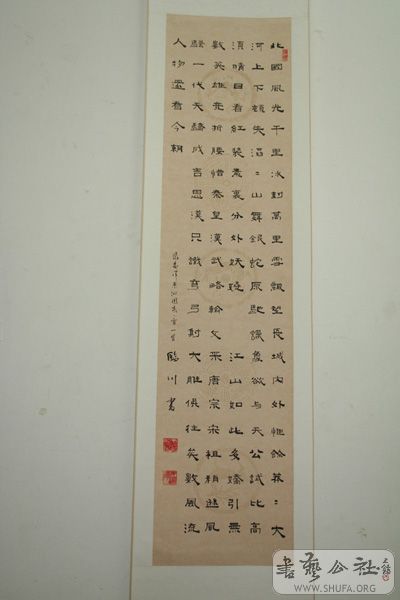 北國風光千里冰封萬里雪飄望長城内外惟餘莽〻大
河上下頓失滔〻山舞銀蛇原馳蠟象欲与天公試比高
須晴日看紅裝素裹分外妖嬈江山如此多嬌引無
數英雄竞折腰惜秦皇漢武略輸文采唐宗宋祖稍遜風
騷一代天驕成吉思漢只識彎弓射大雕俱往矣數風流
人物還看今朝
沁園春雪一首
川書
書藝公社
WWW.SHUFA.ORG